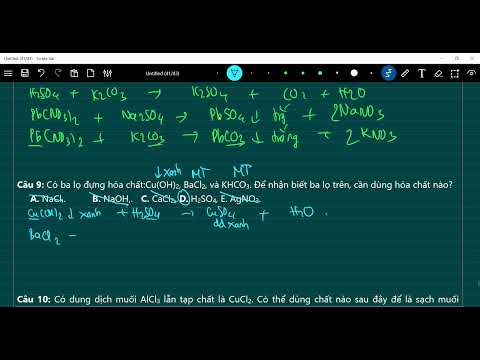 Untitled (41/43) - Scrble Ink
Untitled (41/43)
H2SO4 + K2CO3 → K2SO4 + CO2 + H2O
Pb(NO3)2 + Na2SO4 → PbSO4 ↓ trắg + 2NaNO3
Pb(NO3)2 + K2CO3 → PbCO3 ↓ trắng + 2KNO3
↓ xanh MT MT
Câu 9: Có ba lọ đựng hóa chất:Cu(OH)2, BaCl2, và KHCO3. Để nhận biết ba lọ trên, cần dùng hóa chất nào?
A. NaCl. B. NaOH. C. CaCl2. D. H2SO4. E. AgNO3.
Cu(OH)2 ↓ xanh + H2SO4 → CuSO4 + H2O
dd xanh
BaCl2 –
Câu 10: Có dung dịch muối AlCl3 lẫn tạp chất là CuCl2. Có thể dùng chất nào sau đây để là sạch muối